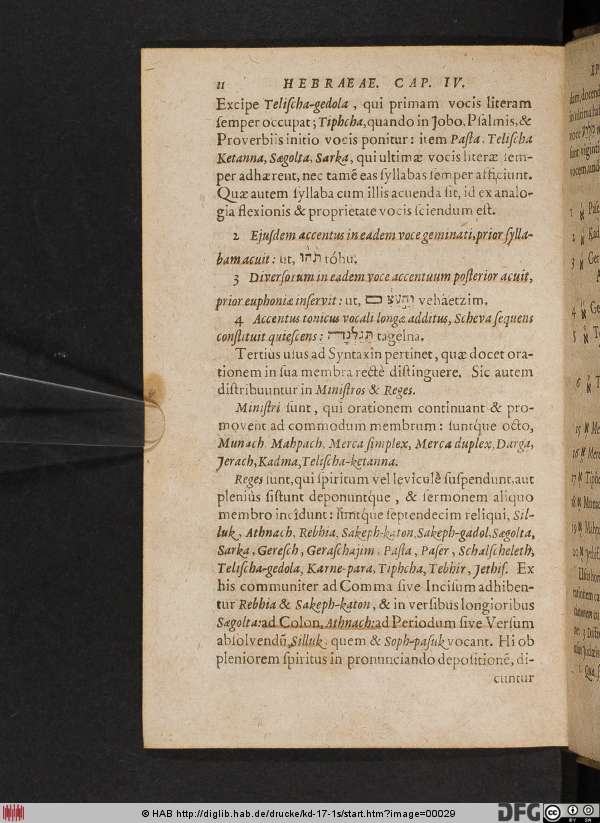 11 HEBRAEAE. CAP. IV.
Excipe Teliſcha-gedola, qui primam vocis literam
ſemper occupat; Tiphcha, quando in Jobo, Pſalmis, &
Proverbiis initio vocis ponitur: item Paſta, Teliſcha
Ketanna, Sægolta, Sarka, qui ultimæ vocis literæ ſem-
per adhærent, nec tamẽ eas ſyllabas ſemper afficiunt.
Quæ autem ſyllaba cum illis acuenda ſit, id ex analo-
gia flexionis & proprietate vocis ſciendum eſt.
2 Ejuſdem accentus in eadem voce geminati, prior ſylla-
bam acuit: ut, תֹהוּ tóhu.
3 Diverſorum in eadem voce accentuum poſterior acuit,
prior euphoniæ inſervit: ut, vehàetzim.
4 Accentus tonicus vocali longæ additus, Scheva ſequens
conſtituit quieſcens: תָּגֵלְנָה tagelna.
Tertius uſus ad Syntaxin pertinet, quæ docet ora-
tionem in ſua membra rectè diſtinguere. Sic autem
diſtribuuntur in Miniſtros & Reges.
Miniſtri ſunt, qui orationem continuant & pro-
movent ad commodum membrum: ſuntque octo,
Munach, Mahpach, Merca ſimplex, Merca duplex, Darga,
Jerach, Kadma, Teliſcha-ketanna.
Reges ſunt, qui ſpiritum vel leviculè ſuſpendunt, aut
pleniùs ſiſtunt deponuntque, & ſermonem aliquo
membro incidunt: ſuntque ſeptendecim reliqui, Sil-
luk, Athnach, Rebhia, Sakeph-katon, Sakeph-gadol, Sægolta,
Sarka, Gereſch, Geraſchajim, Paſta, Paſer, Schalſcheleth,
Teliſcha-gedola, Karne-para, Tiphcha, Tebhir, Jethif. Ex
his communiter ad Comma ſive Inciſum adhiben-
tur Rebhia & Sakeph-katon, & in verſibus longioribus
Sægolta: ad Colon, Athnach: ad Periodum ſive Verſum
abſolvendũ, Silluk, quem & Soph-paſuk vocant. Hi ob
pleniorem ſpiritus in pronunciando depoſitionẽ, di-
cuntur
© HAB http://diglib.hab.de/drucke/kd-17-1s/start.htm?image=00029
DFG
CC BY SA